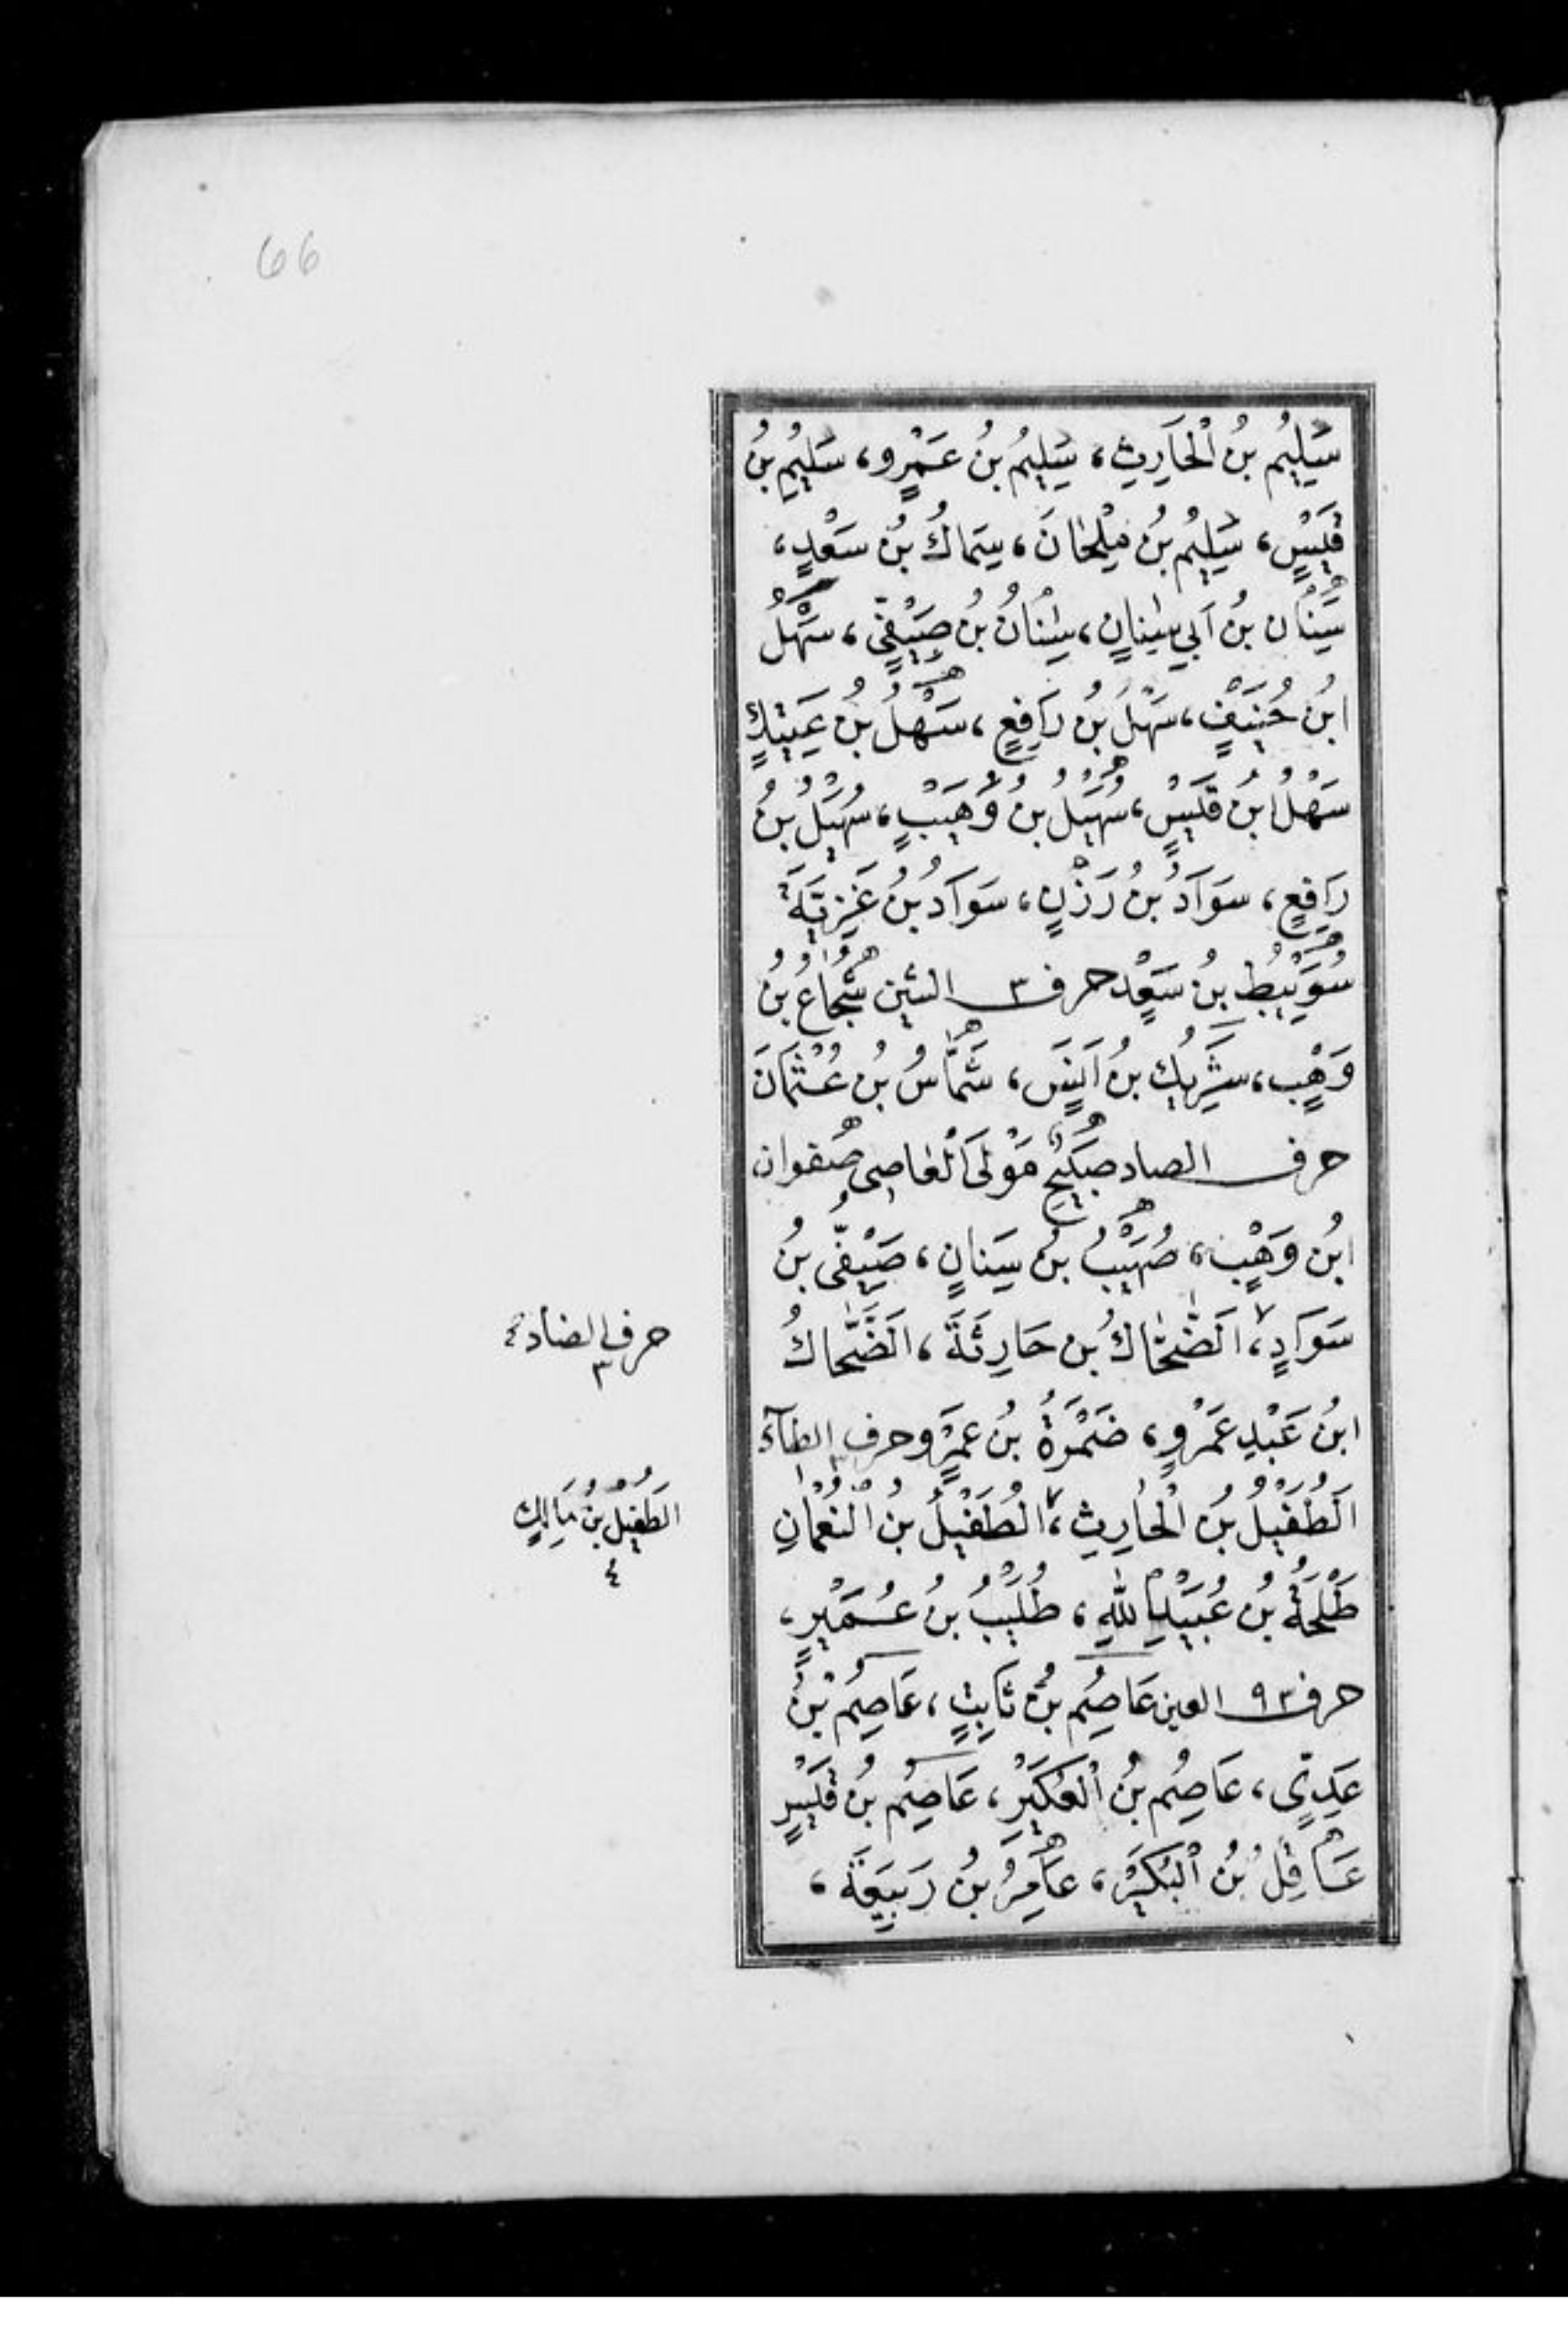 66
سَلِيْمُ بْنُ الْحَارِثِ، سَلِيْمُ بْنُ عَمْرٍو، سَلِيْمُ بْنُ
قَيْسٍ، سَلِيْمُ بْنُ مِلْحَانَ، سِمَاكُ بْنُ سَعْدٍ،
سِنَانُ بْنُ أَبِي سِنَانٍ، سِنَانُ بْنُ صَيْفِيٍّ، سَهْلُ
ابْنُ حُنَيْفٍ، سَهْلُ بْنُ رَافِعٍ، سَهْلُ بْنُ عَتِيْكٍ
سَهْلُ ابْنُ قَيْسٍ، سُهَيْلُ بْنُ وُهَيْبٍ، سُهَيْلُ بْنُ
رَافِعٍ، سَوَادُ بْنُ رَزْنٍ، سَوَادُ بْنُ غَزِيَّةَ
سُوَيْبِطُ بْنُ سَعْدٍ حرف ٣ الشين شُجَاعُ بْنُ
وَهْبٍ، شَرِيكُ بْنُ أَنَسٍ، شَمَّاسُ بْنُ عُثْمَانَ
حرف الصاد صُبَيْحٌ مَوْلَى الْعَاصِي صفوان
ابْنُ وَهْبٍ، صُهَيْبُ بْنُ سِنَانٍ، صَيْفِيُّ بْنُ
سَوَادٍ، اَلضَّحَّاكُ بْنُ حَارِثَةَ، اَلضَّحَّاكُ
حرف الضاد
٣
ابْنُ عَبْدِ عَمْرٍو، ضَمْرَةُ بْنُ عَمْرٍو حرف الطآء
اَلطُّفَيْلُ بْنُ الْحَارِثِ، اَلطُّفَيْلُ بْنُ النُّعْمَانِ
الطُّفَيْلُ بْنُ مَالِكٍ
٤
طَلْحَةُ بْنُ عُبَيْدِ اللهِ، طُلَيْبُ بْنُ عُمَيْرٍ،
حرف ٩٣ العين عَاصِمُ بْنُ ثَابِتٍ، عَاصِمُ بْنُ
عَدِيٍّ، عَاصِمُ بْنُ الْعُكَيْرِ، عَاصِمُ بْنُ قَيْسٍ
عَاقِلُ بْنُ الْبُكَيْرِ، عَامِرُ بْنُ رَبِيْعَةَ،